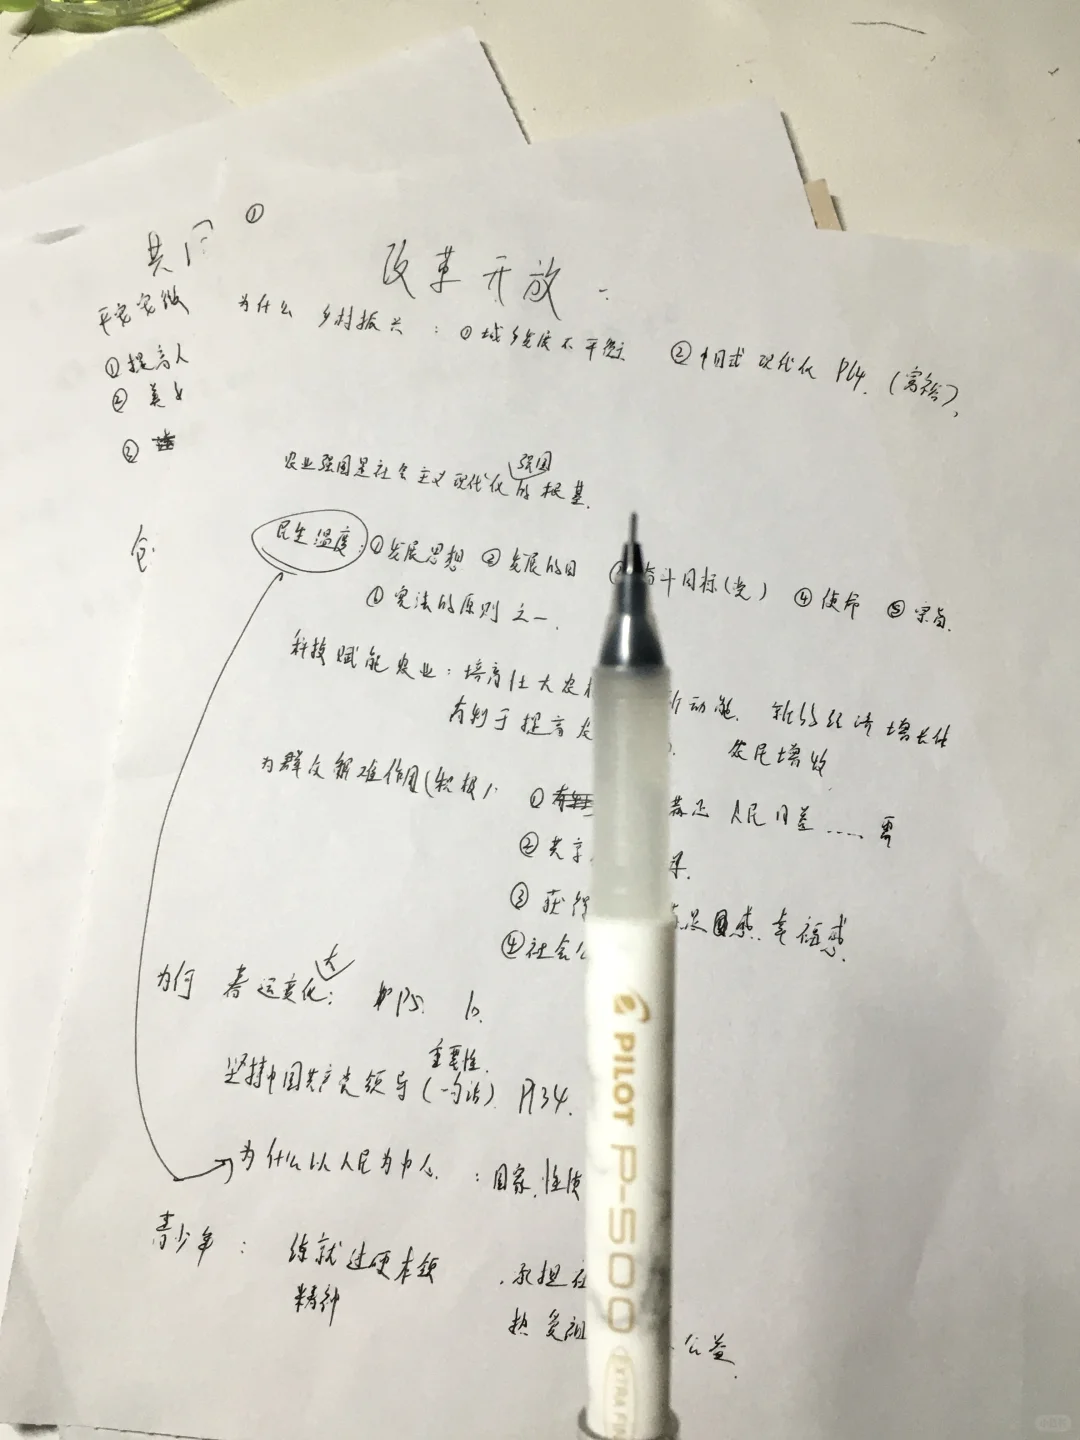 ①
共同
改革开放
为什么 乡村振兴：①城乡发展不平衡 ②中国式现代化 P64.（富裕）,
①提高人
②美
③
农业强国是社会主义现代化强国的根基.
民生温度：①发展思想 ②发展的目 斗目标(党) ④使命 ⑤宗旨.
①宪法的原则之一.
科技赋能农业：培育壮大农 动能. 经济增长
有利于提高农 农民增收
为群众解难作用(积极)
① 人民日益……需
②共享
③获得 感.幸福感.
④社会公
为何 春运变化大: P5.
坚持中国共产党领导(一句话)重要性. P134.
为什么以人民为中心 : 国家.性质
青少年： 练就过硬本领 .承担
精神
热爱祖 公益.
PILOT P-500
EXTRA FIN